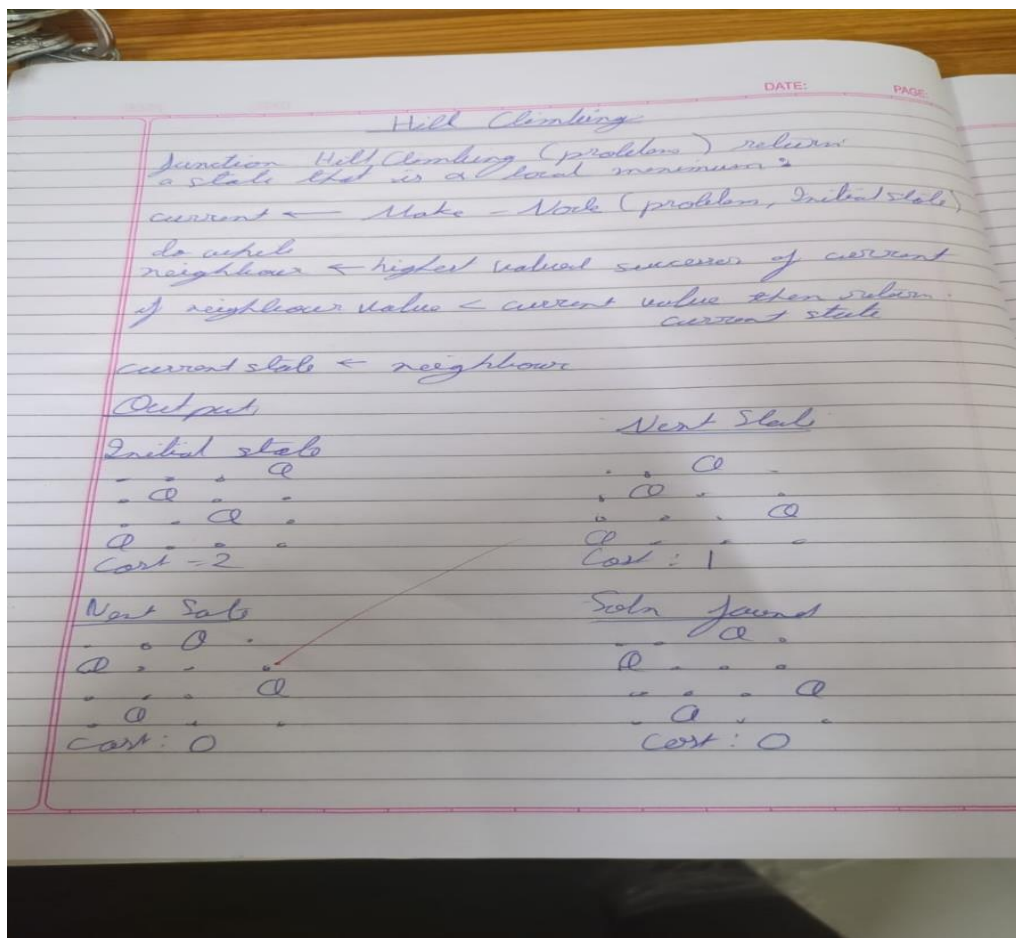 DATE: PAGE:
Hill Climbing
function Hill Climbing (problem) return
a state that is a local minimum:
current ← Make - Node (problem, Initial state)
do while
neighbour ← highest valued successor of current
if neighbour value < current value then return
current state
current state ← neighbour
Output
Initial state
. . . Q
. Q . .
. . Q .
Q . . .
Cost = 2
Next State
. . Q .
. Q . .
. . . Q
Q . . .
Cost : 1
Next Sate
. . Q .
Q . . .
. . . Q
. Q . .
Cost : 0
Soln found
. . Q .
Q . . .
. . . Q
. Q . .
Cost : 0